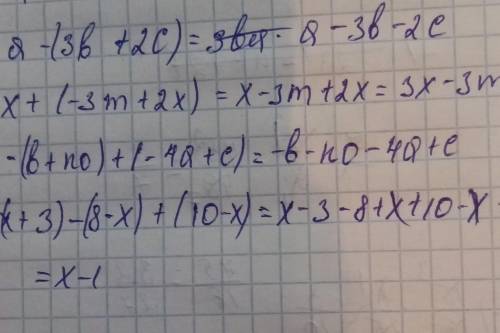 a - (3в + 2с) = a - 3в - 2с
x + (-3m + 2x) = x - 3m + 2x = 3x - 3m
-(в + no) + (-4a + c) = -в - no - 4a + c
(x + 3) - (8 - x) + (10 - x) = x - 3 - 8 + x + 10 - x
= x - 1